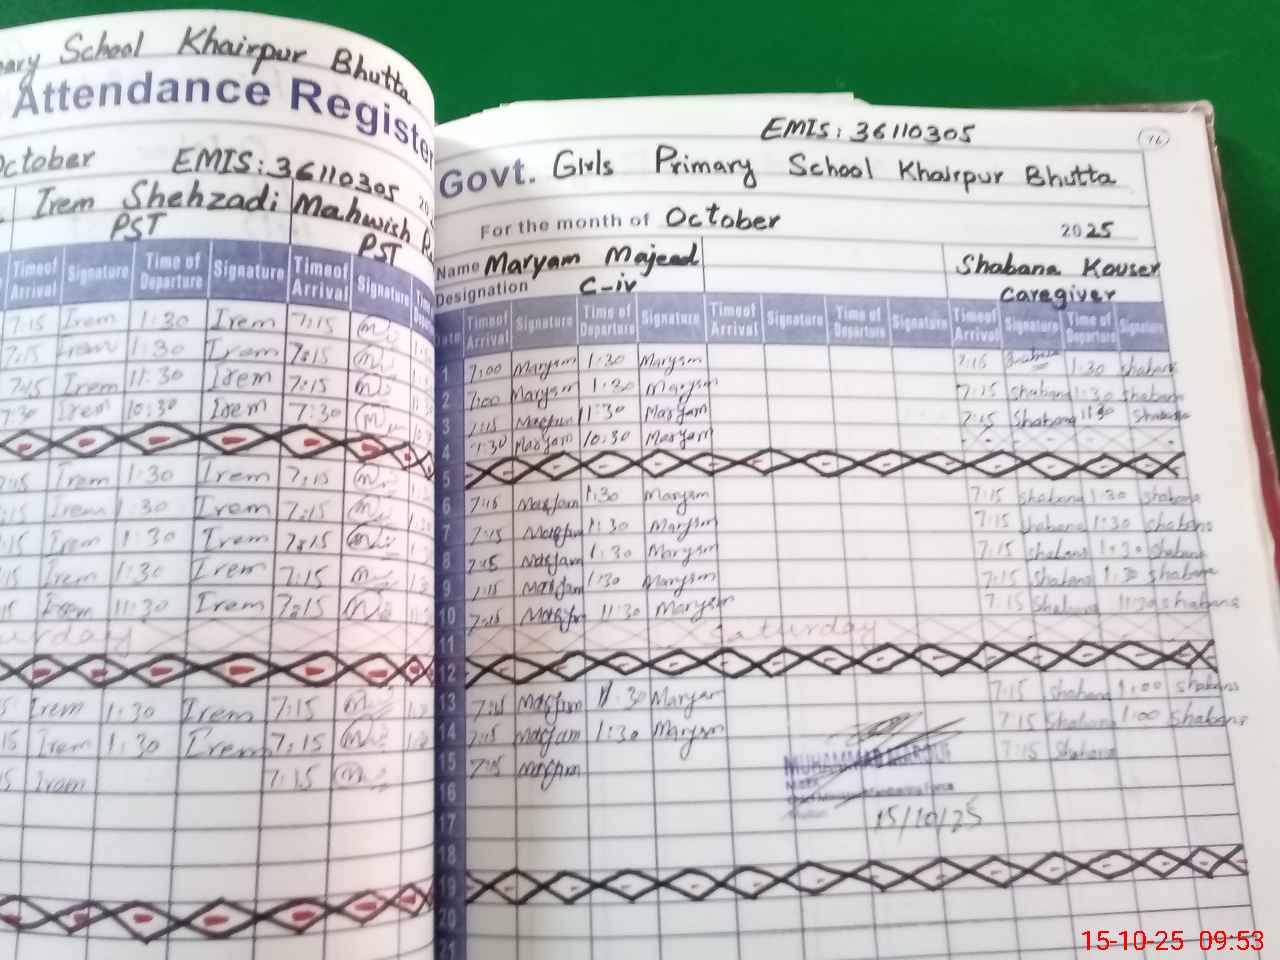 School Khairpur Bhutta
Attendance Registe
October EMIS: 36110305
Irem Shehzadi Mahwish
PST PST
Time of Arrival Signature Time of Departure Signature Time of Arrival Signature
7:15 Irem 1:30 Irem 7:15
7:15 Irem 1:30 Irem 7:15
7:15 Irem 11:30 Irem 7:15
7:30 Irem 10:30 Irem 7:30
7:15 Irem 1:30 Irem 7:15
:15 Irem 1:30 Irem 7:15
:15 Irem 1:30 Irem 7:15
:15 Irem 1:30 Irem 7:15
15 Irem 11:30 Irem 7:15
urday
5 Irem 1:30 Irem 7:15
15 Irem 1:30 Irem 7:15
5 Irem 7:15
16
EMIS: 36110305
Govt. Girls Primary School Khairpur Bhutta
For the month of October 2025
Name Maryam Majeed Shabana Kouser
Designation C-iv Caregiver
Date Time of Arrival Signature Time of Departure Signature Time of Arrival Signature Time of Departure Signature Time of Arrival Signature Time of Departure Signature
1 7:00 Maryam 1:30 Maryam 7:15 Shabana 1:30 Shabana
2 7:00 Maryam 1:30 Maryam 7:15 Shabana 1:30 Shabana
3 7:15 Maryam 11:30 Maryam 7:15 Shabana 11:30 Shabana
4 7:30 Maryam 10:30 Maryam
5
6 7:15 Maryam 1:30 Maryam 7:15 Shabana 1:30 Shabana
7 7:15 Maryam 1:30 Maryam 7:15 Shabana 1:30 Shabana
8 7:15 Maryam 1:30 Maryam 7:15 Shabana 1:30 Shabana
9 7:15 Maryam 1:30 Maryam 7:15 Shabana 1:30 Shabana
10 7:15 Maryam 11:30 Maryam 7:15 Shabana 11:30 Shabana
11 Saturday
12
13 7:15 Maryam 1:30 Maryam 7:15 Shabana 1:00 Shabana
14 7:15 Maryam 1:30 Maryam 7:15 Shabana 1:00 Shabana
15 7:15 Maryam 7:15 Shabana
MUHAMMAD
16
17 15/10/25
18
19
20
21
15-10-25 09:53